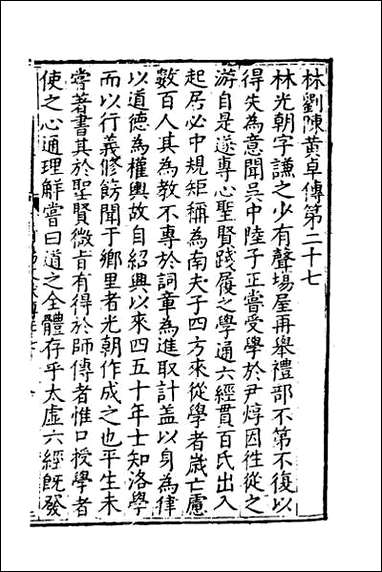 林劉陳黃卓傳第二十七
林光朝字謙之少有聲場屋再舉禮部不第不復以
得失為意聞吳中陸子正嘗受學於尹焞因徃從之
游自是遂專心聖賢踐履之學通六經貫百氏出入
起居必中規矩稱為南夫子四方來從學者歳亡慮
數百人其為教不專於詞章為進取計盖以身為律
以道德為權輿故自紹興以來四五十年士知洛學
而以行義修飭聞于鄉里者光朝作成之也平生未
嘗著書其於聖賢微㫖有得於師傳者惟口授學者
使之心通理解嘗曰道之全體存乎太虛六經旣發